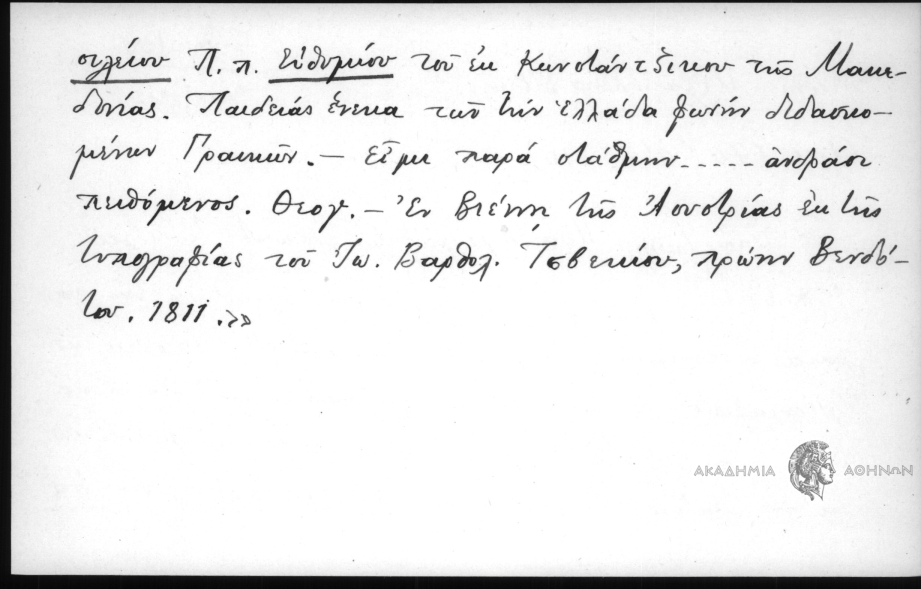 σιλείου Π. π. Εὐθυμίου τοῦ ἐκ Κωνστάντζικου τῆς Μακε-
δονίας. Παιδείας ἕνεκα τῶν τὴν Ἑλλάδα φωνὴν διδασκο-
μένων Γραικῶν. – Εἶμι παρὰ στάθμην ..... ἀνδράσι
πειθόμενος. Θεογ. – Ἐν Βιέννῃ τῆς Ἀουστρίας ἐκ τῆς
τυπογραφίας τοῦ Ἰω. Βαρθολ. Τσβεκίου, πρώην Βενδό-
του. 1811.»
ΑΚΑΔΗΜΙΑ ΑΘΗΝΩΝ